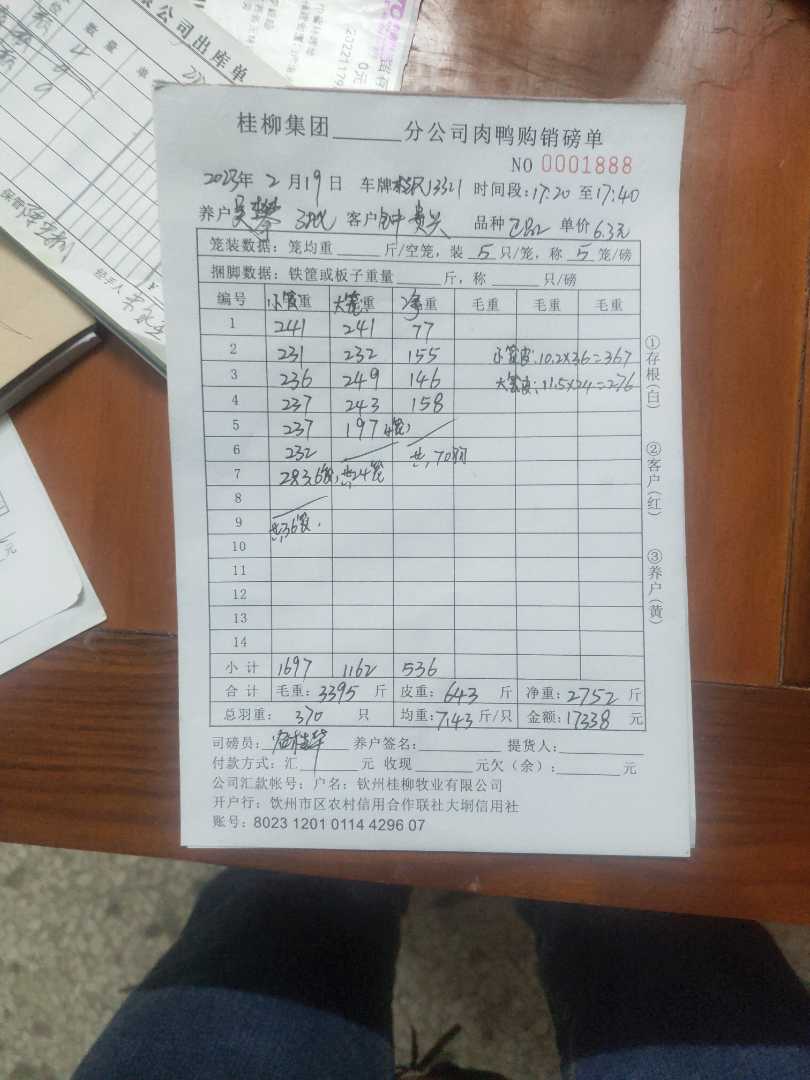 公司出库单
数量
单
经手人
桂柳集团______分公司肉鸭购销磅单
NO 0001888
2023年 2 月 19 日 车牌 13321 时间段:17:20 至17:40
养户 客户 贵兴 品种 单价 6.3元
笼装数据:笼均重______斤/空笼,装 5 只/笼,称 5 笼/磅
捆脚数据:铁筐或板子重量______斤,称______只/磅
编号 小笼重 大笼重 净重 毛重 毛重 毛重
1 241 241 77
2 231 232 155 小笼皮:10.2×36=367
3 236 249 146 大笼皮:11.5×24=276
4 237 243 158
5 237 197(4笼)
6 232 共70羽
7 283.6笼, 共24笼
8
9 共36笼.
10
11
12
13
14
小计 1697 1162 536
合计 毛重:3395 斤 皮重:643 斤 净重:2752 斤
总羽重: 370 只 均重:7.43斤/只 金额:17338 元
司磅员: 养户签名:________ 提货人:________
付款方式:汇________元 收现________元欠(余):________元
公司汇款帐号:户名:钦州桂柳牧业有限公司
开户行:钦州市区农村信用合作联社大垌信用社
账号:8023 1201 0114 4296 07
①存根(白)
②客户(红)
③养户(黄)